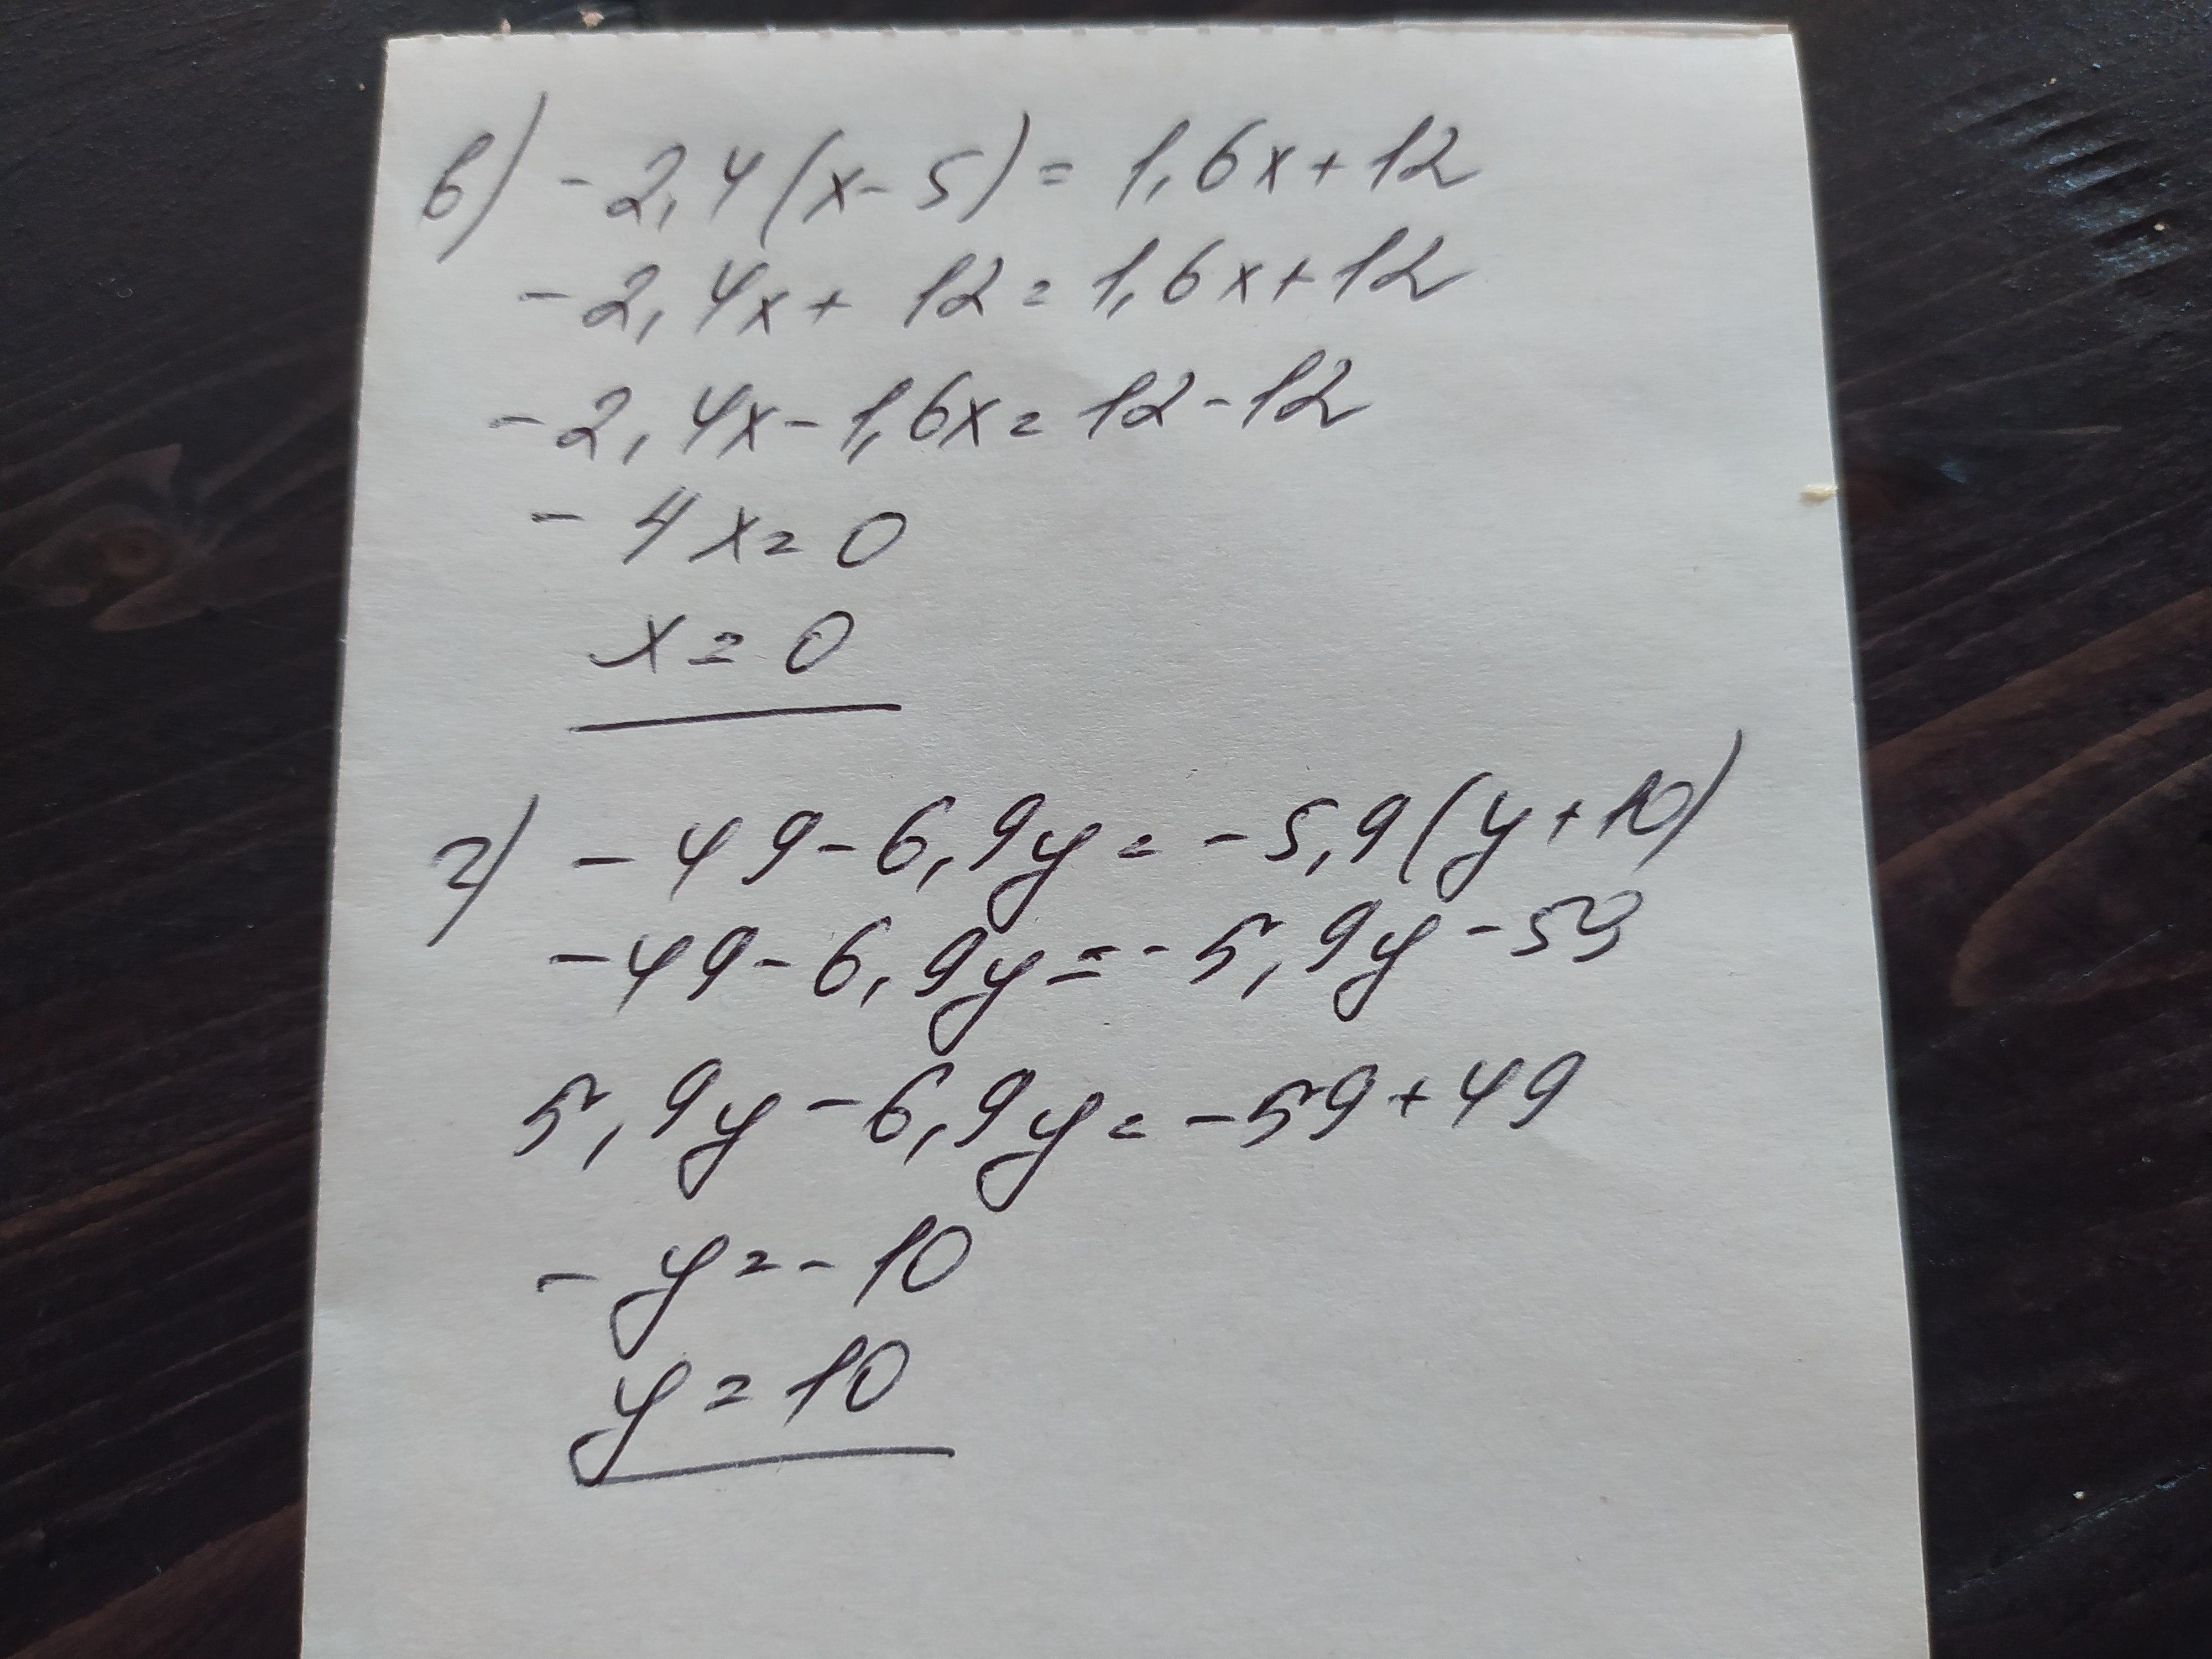 в) -2,4(x-5)=1,6x+12
-2,4x+12=1,6x+12
-2,4x-1,6x=12-12
-4x=0
x=0
г) -49-6,9y=-5,9(y+10)
-49-6,9y=-5,9y-59
5,9y-6,9y=-59+49
-y=-10
y=10